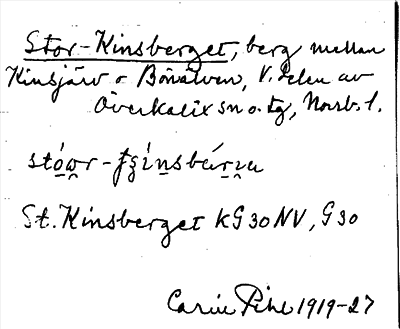 Stor-Kinsberget, berg mellan
Kinsjärv o Bönälven, V. delen av
Överkalix sn o. tg, Norrb. l.
St. Kinsberget KG30NV, G30
Carin Pihl 1919-27